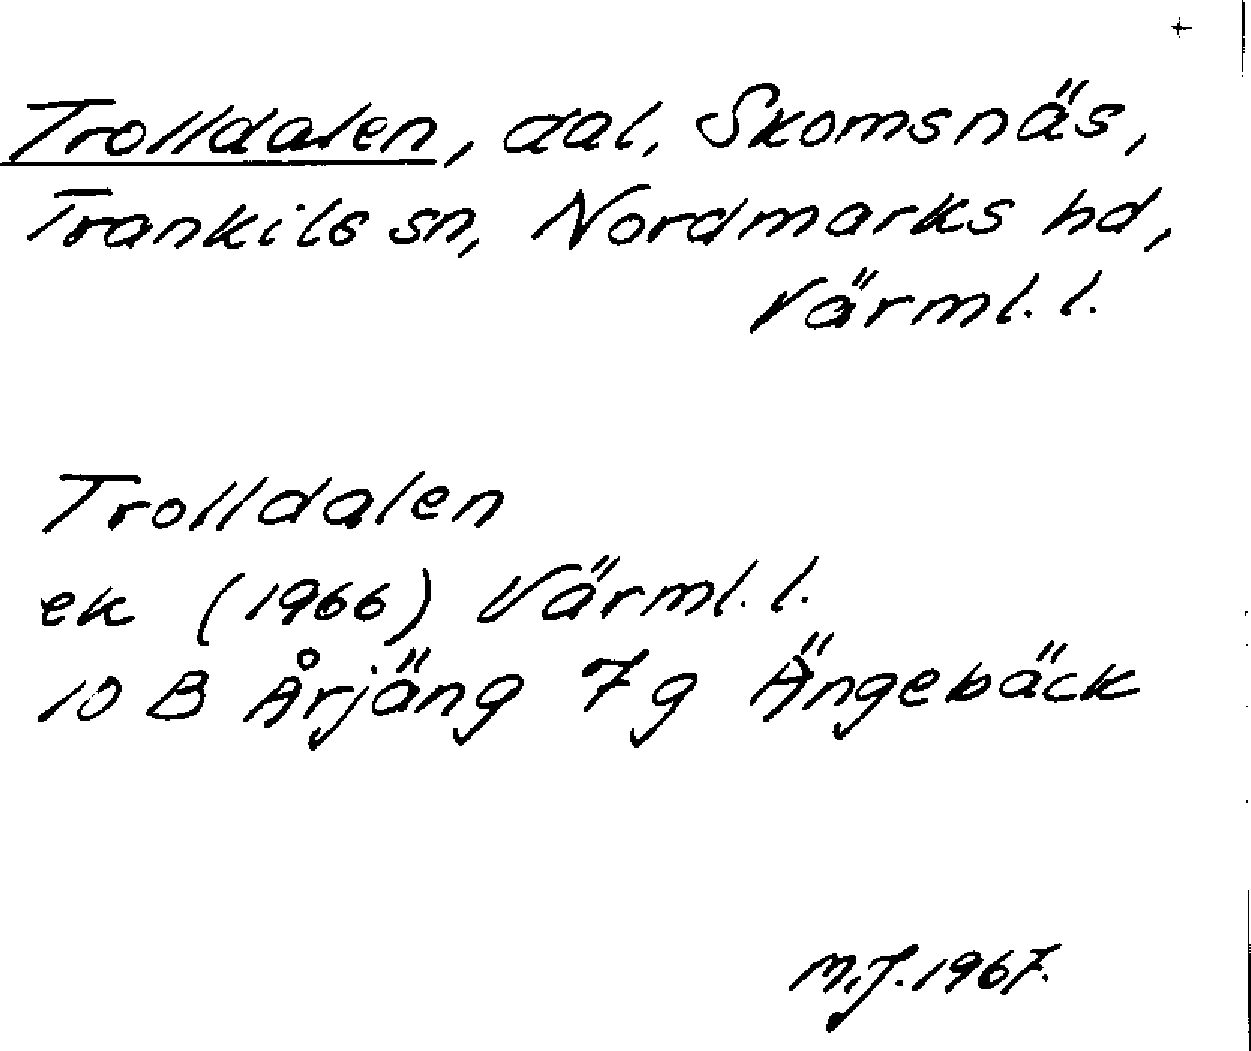 +
Trolldalen, dal, Skomsnäs,
Trankils sn, Nordmarks hd,
Värml. l.
Trolldalen
ek (1966) Värml. l.
10 B Årjäng 7 g Ängebäck
M.J. 1967.